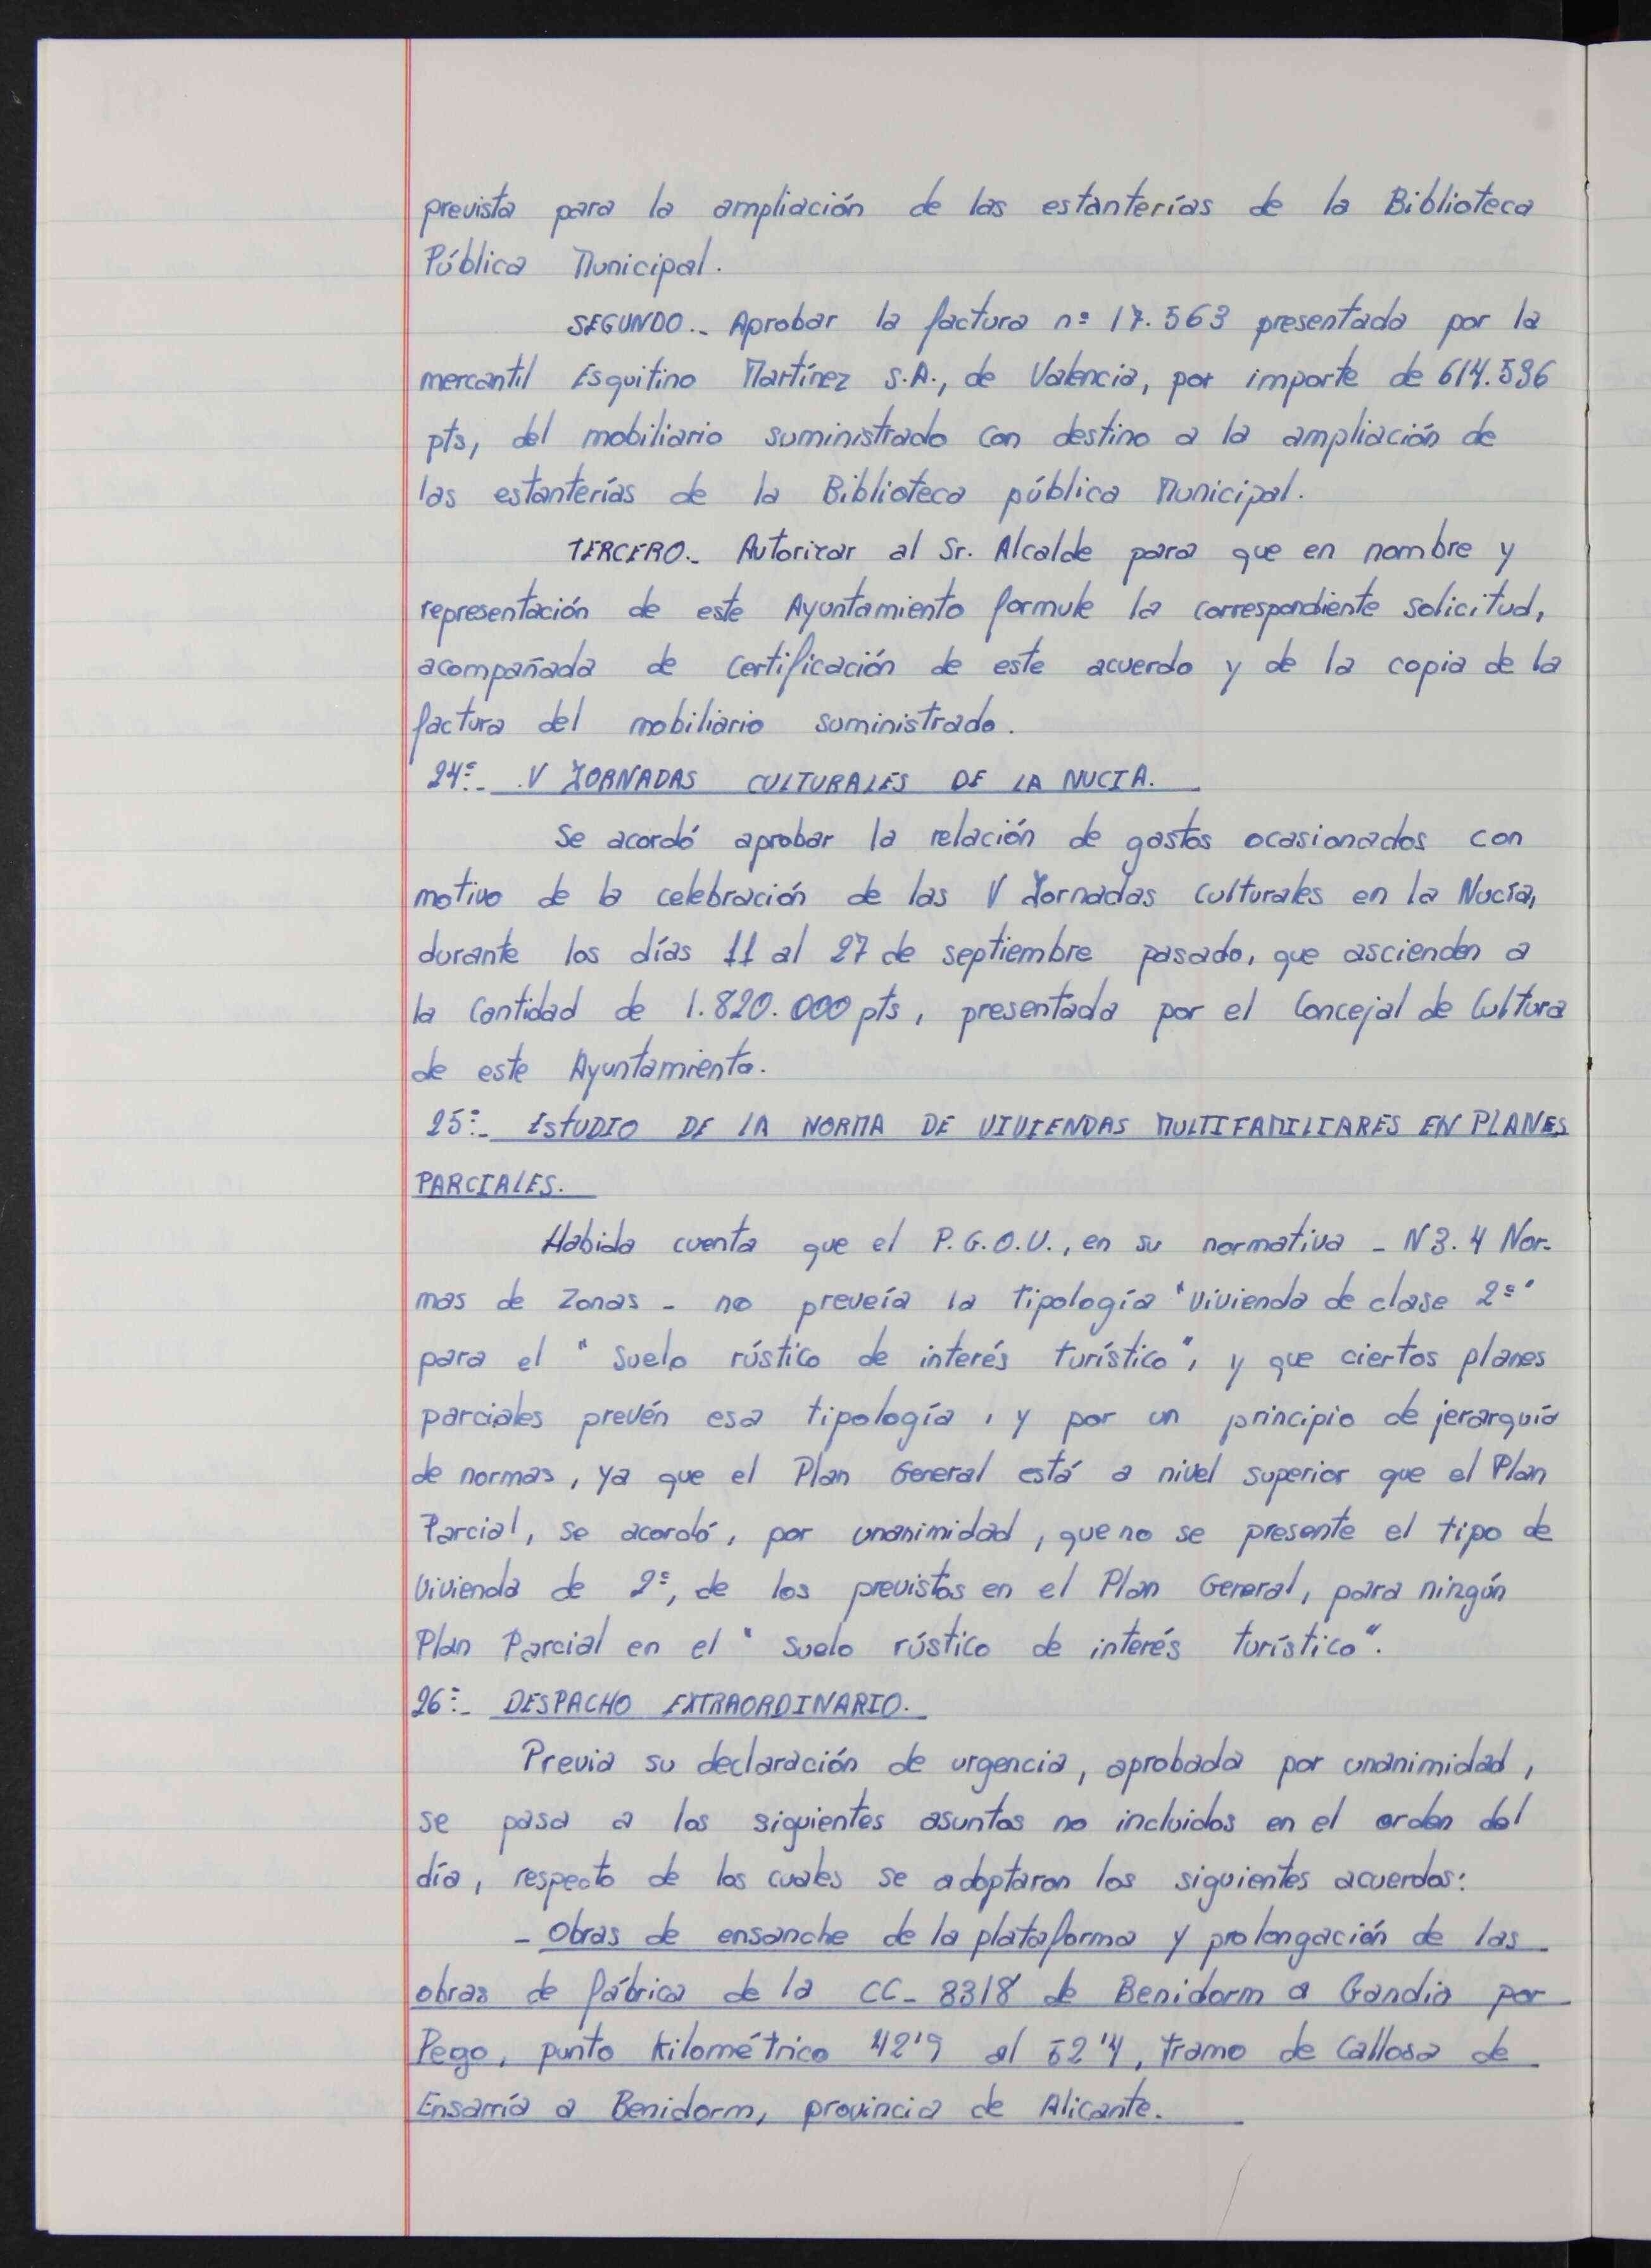 prevista para la ampliación de las estanterías de la Biblioteca
Pública Municipal.
SEGUNDO.- Aprobar la factura nº 17.563 presentada por la
mercantil Esquitino Martínez S.A., de Valencia, por importe de 614.596
pts, del mobiliario suministrado con destino a la ampliación de
las estanterías de la Biblioteca pública Municipal.
TERCERO.- Autorizar al Sr. Alcalde para que en nombre y
representación de este Ayuntamiento formule la correspondiente solicitud,
acompañada de certificación de este acuerdo y de la copia de la
factura del mobiliario suministrado.
24º.- V JORNADAS CULTURALES DE LA NUCIA.
Se acordó aprobar la relación de gastos ocasionados con
motivo de la celebración de las V Jornadas Culturales en la Nucía,
durante los días 11 al 27 de septiembre pasado, que ascienden a
la cantidad de 1.820.000 pts, presentada por el Concejal de Cultura
de este Ayuntamiento.
25º.- ESTUDIO DE LA NORMA DE VIVIENDAS MULTIFAMILIARES EN PLANES
PARCIALES.
Habida cuenta que el P.G.O.U., en su normativa - N 3.4 Nor-
mas de Zonas - no preveía la tipología "vivienda de clase 2ª"
para el "Suelo rústico de interés turístico", y que ciertos planes
parciales prevén esa tipología, y por un principio de jerarquía
de normas, ya que el Plan General está a nivel superior que el Plan
Parcial, se acordó, por unanimidad, que no se presente el tipo de
vivienda de 2ª, de los previstos en el Plan General, para ningún
Plan Parcial en el "Suelo rústico de interés turístico".
26º.- DESPACHO EXTRAORDINARIO.
Previa su declaración de urgencia, aprobada por unanimidad,
se pasa a los siguientes asuntos no incluidos en el orden del
día, respecto de los cuales se adoptaron los siguientes acuerdos:
- Obras de ensanche de la plataforma y prolongación de las
obras de fábrica de la CC-3318 de Benidorm a Gandia por
Pego, punto kilométrico 42'9 al 52'4, tramo de Callosa de
Ensarriá a Benidorm, provincia de Alicante.